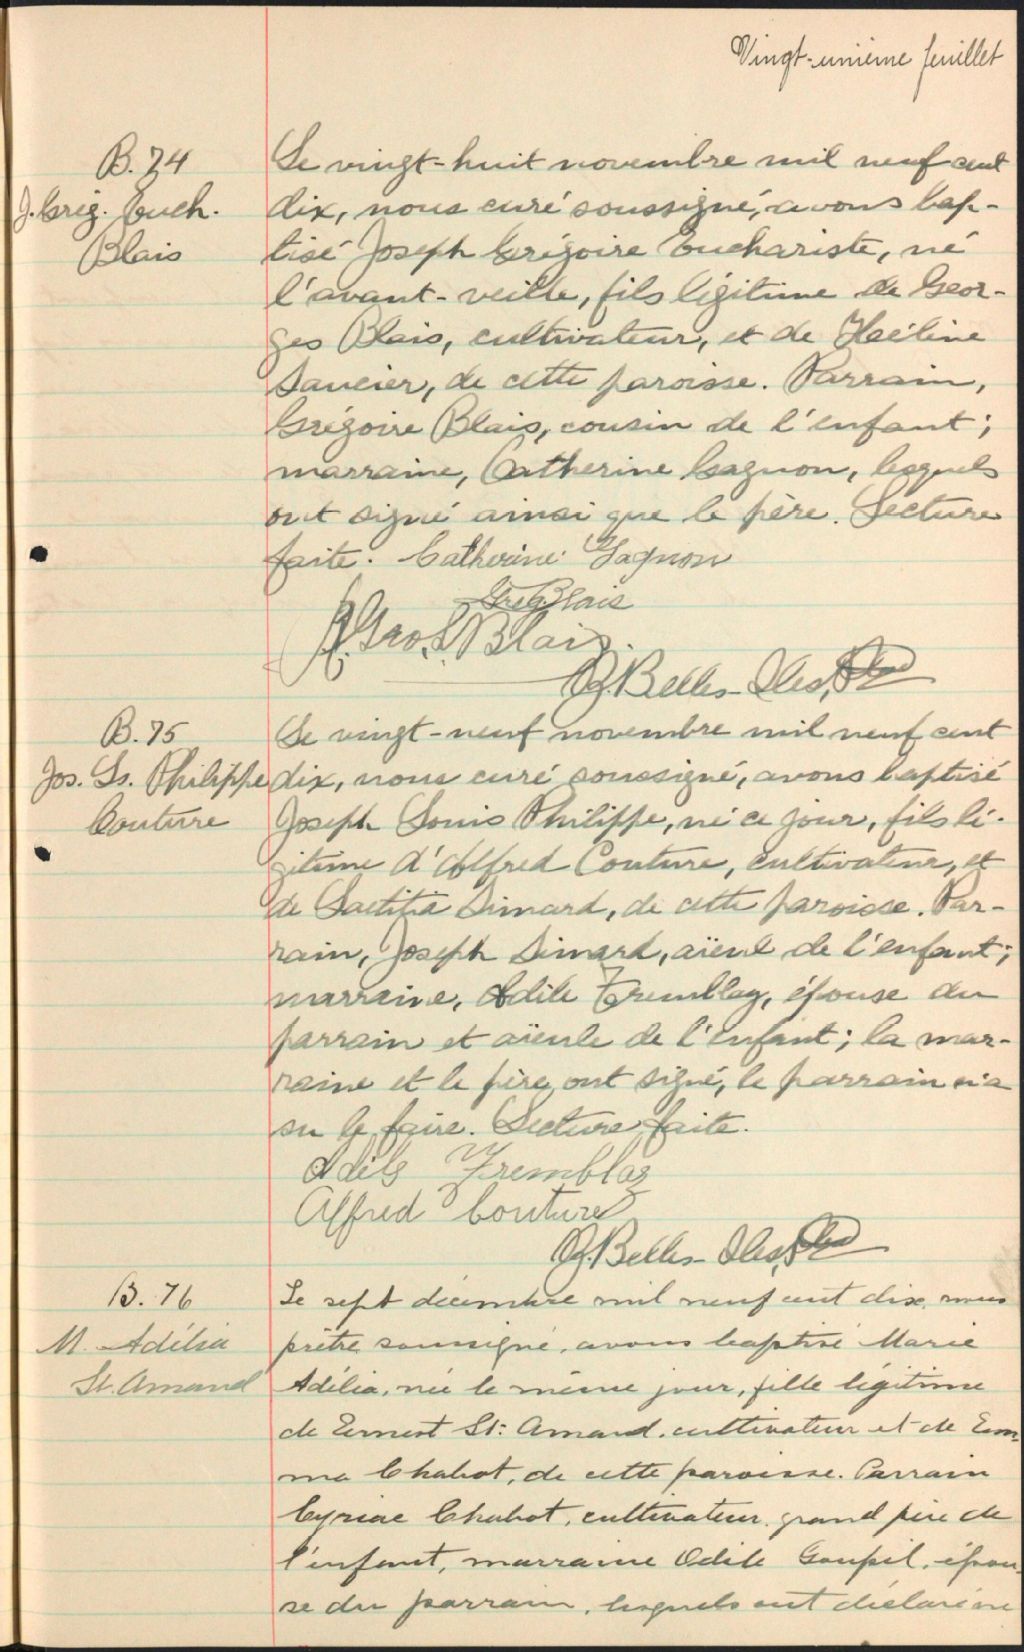 Vingt-unième feuillet
B. 74
J. Grég. Euch.
Blais
Le vingt-huit novembre mil neuf cent
dix, nous curé soussigné, avons bap-
tisé Joseph Grégoire Euchariste, né
l'avant-veille, fils légitime de Geor-
ges Blais, cultivateur, et de
Saucier, de cette paroisse. Parrain,
Grégoire Blais, cousin de l'enfant;
marraine, Catherine Gagnon, lesquels
ont signé ainsi que le père. Lecture
faite. Catherine Gagnon
Greg Blais
Geo. Blais.
Belles-Isles,
B. 75
Jos. Ls. Philippe
Couture
Le vingt-neuf novembre mil neuf cent
dix, nous curé soussigné, avons baptisé
Joseph Louis Philippe, né ce jour, fils lé-
gitime d'Alfred Couture, cultivateur, et
de Laetitia Simard, de cette paroisse. Par-
rain, Joseph Simard, aïeul de l'enfant;
marraine, Adèle Tremblay, épouse du
parrain et aïeule de l'enfant; la mar-
raine et le père ont signé, le parrain n'a
su le faire. Lecture faite.
Adèle Tremblay
Alfred Couture
Belles-Isles,
B. 76
M. Adélia
St. Amand
Le sept décembre mil neuf cent dix, nous
prêtre soussigné, avons baptisé Marie
Adélia, née le même jour, fille légitime
de Ernest St. Amand, cultivateur et de Em-
ma Chabot, de cette paroisse. Parrain
Cyriac Chabot, cultivateur, grand père de
l'enfant, marraine Odile Goupil, épou-
se du parrain, lesquels ont déclaré ne